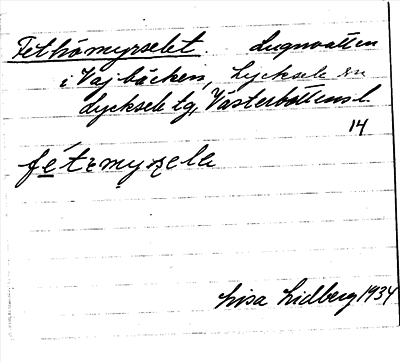 Fethömyrselet. Lugnvatten
i Vajbäcken, Lycksele sn
Lycksele lg, Västerbottens l.
14
Lisa Lidberg 1934